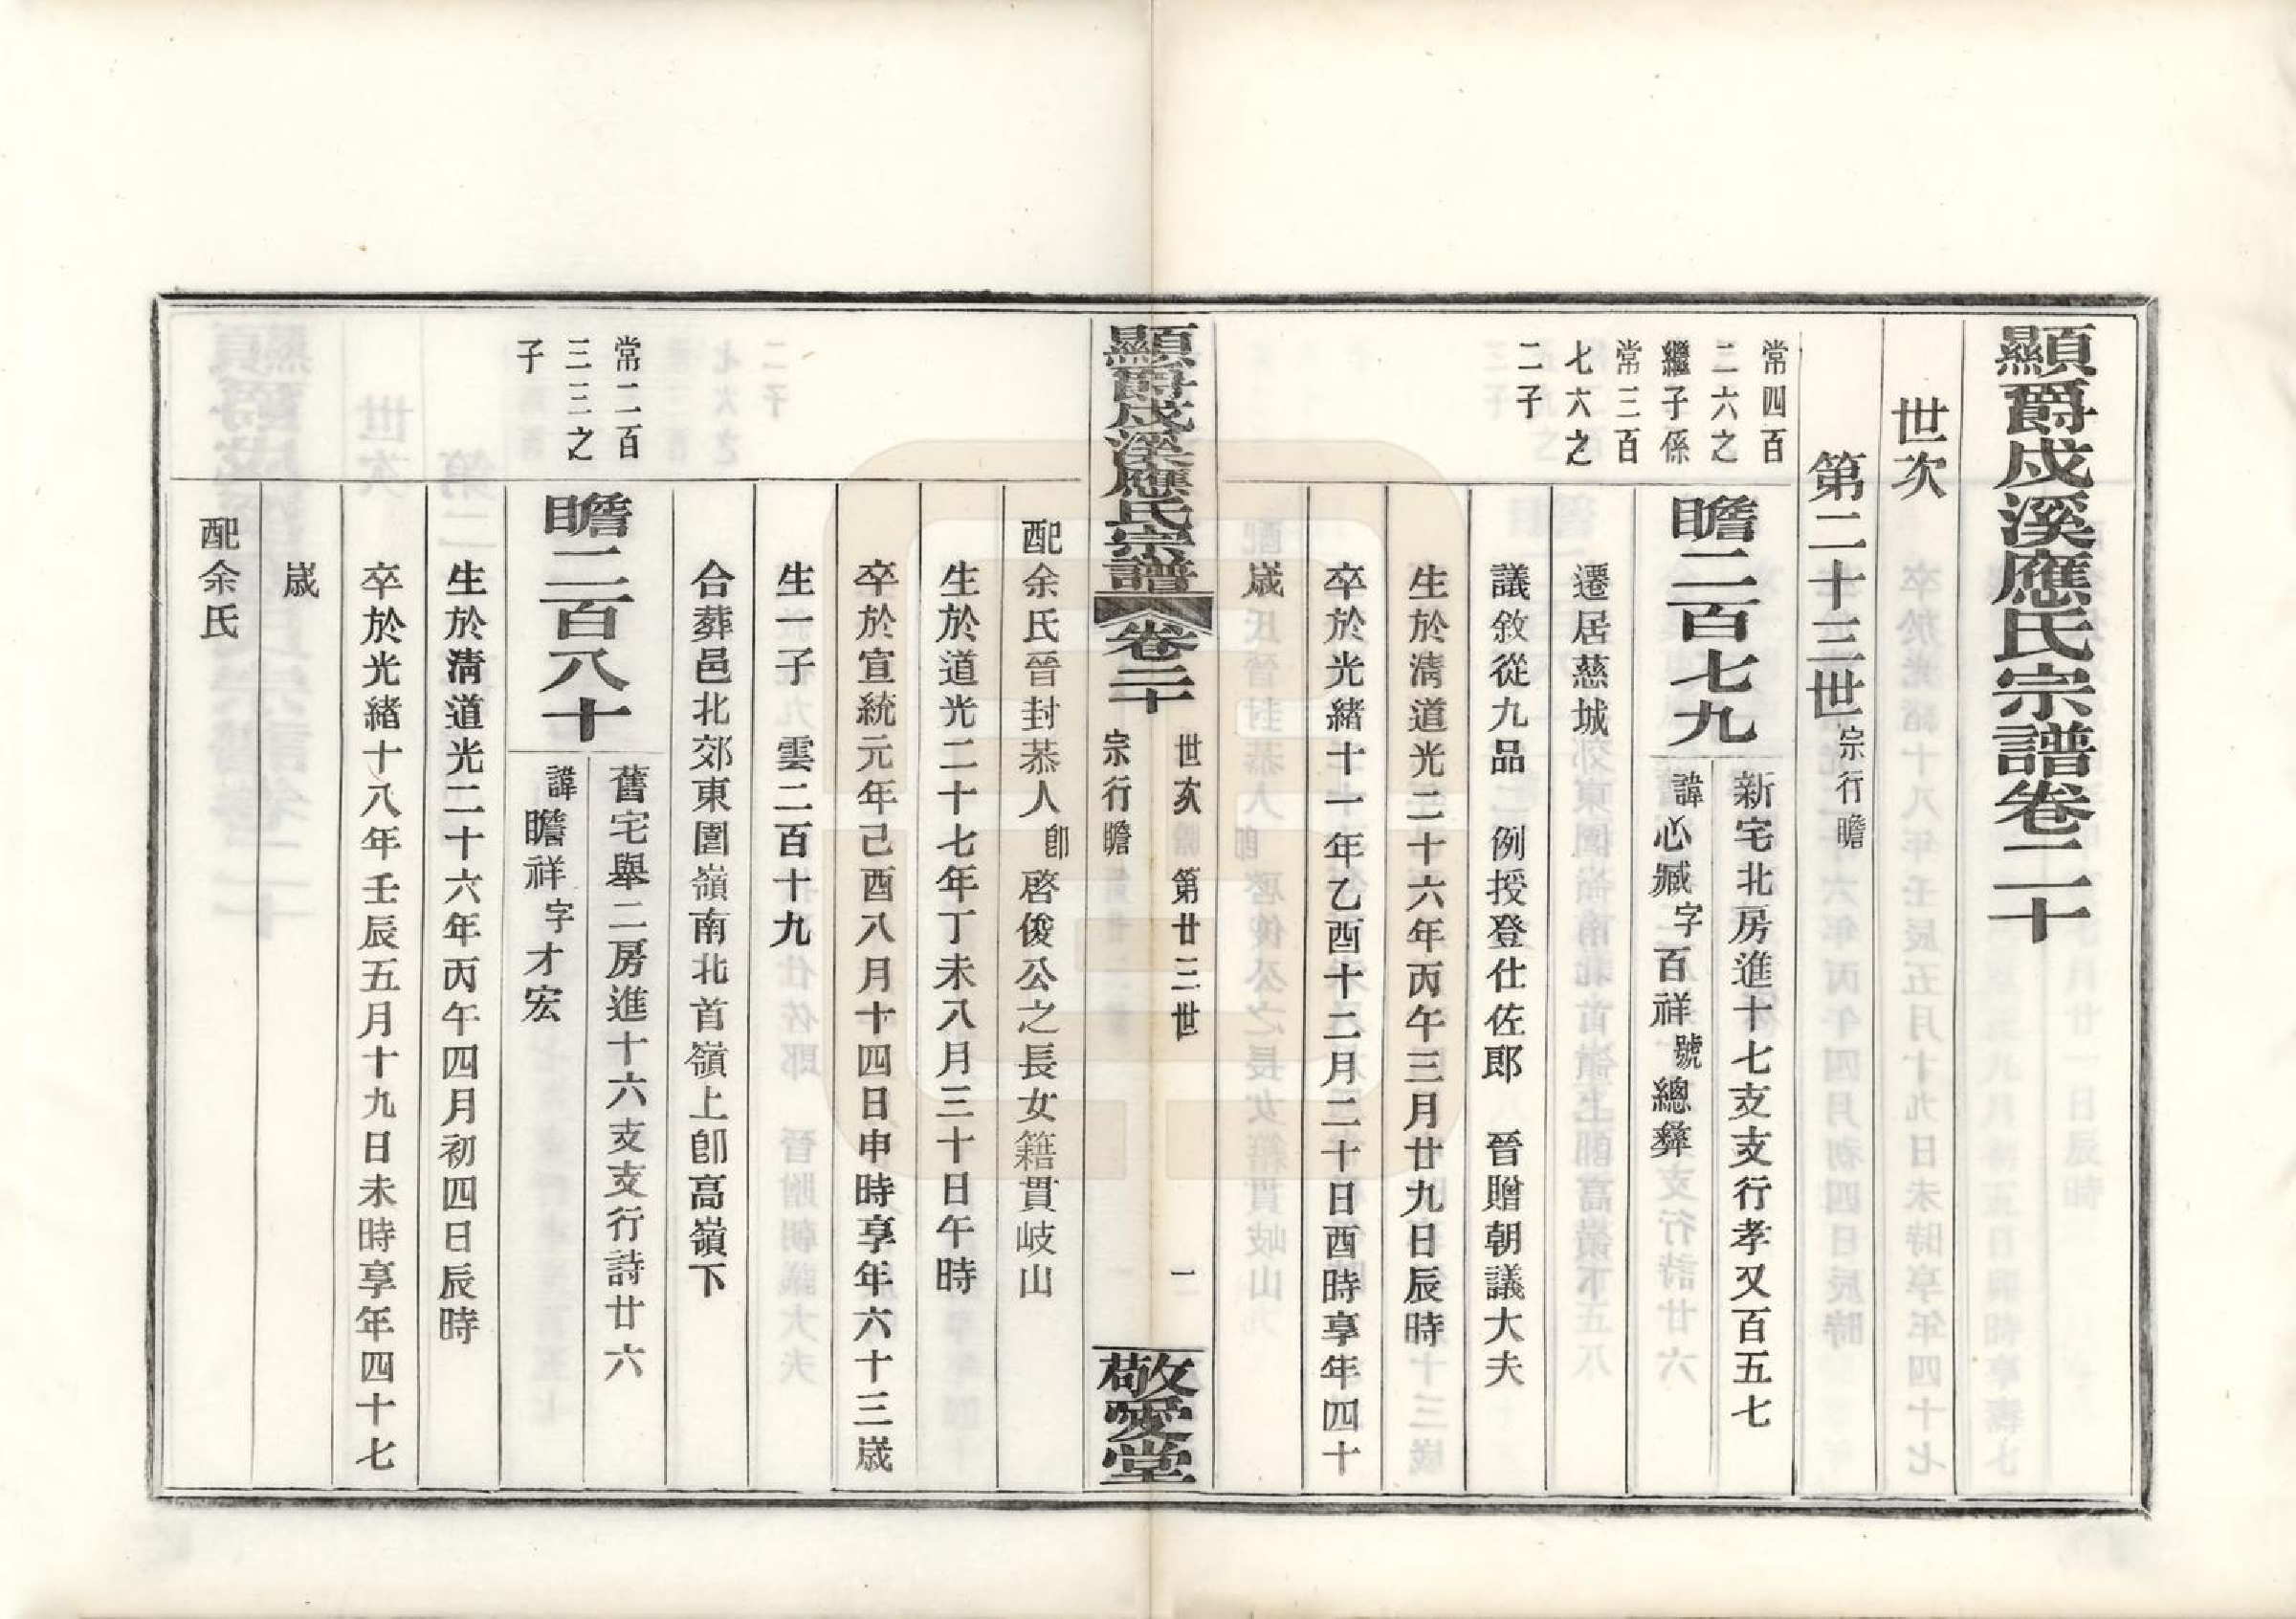 顯爵戍溪應氏宗譜卷二十
世次
第二十三世宗行瞻
常四百
二六之
繼子係
常三百
七六之
二子
瞻二百七九
新宅北房進十七支支行孝又百五七
諱心臧字百祥號總彝
遷居慈城
議敘從九品 例授登仕佐郎 晉贈朝議大夫
生於淸道光二十六年丙午三月廿九日辰時
卒於光緒十一年乙酉十二月二十日酉時享年四十
歲
顯爵戍溪應氏宗譜 卷二十 世次 第廿三世 宗行瞻 一 敬愛堂
配余氏晉封恭人卽啓俊公之長女籍貫岐山
生於道光二十七年丁未八月三十日午時
卒於宣統元年己酉八月十四日申時享年六十三歲
生一子 雲二百十九
合葬邑北郊東圍嶺南北首嶺上卽高嶺下
常二百
三三之
子
瞻二百八十
舊宅舉二房進十六支支行詩廿六
諱瞻祥字才宏
生於淸道光二十六年丙午四月初四日辰時
卒於光緒十八年壬辰五月十九日未時享年四十七
歲
配余氏